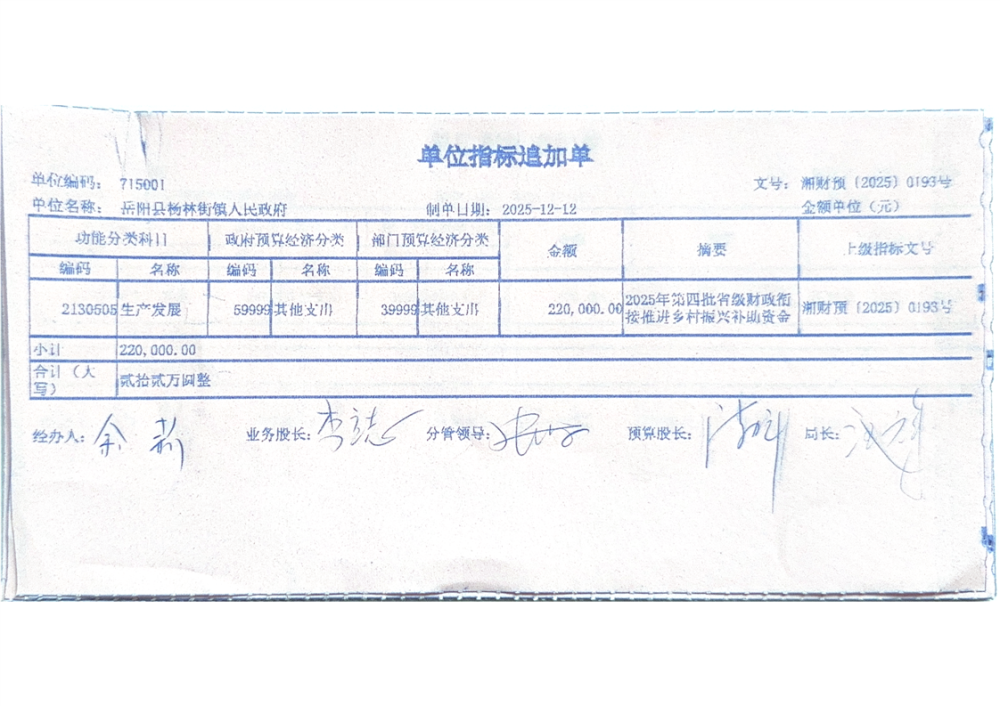 单位指标追加单
单位编码： 715001 文号： 湘财预〔2025〕0193号
单位名称： 岳阳县杨林街镇人民政府 制单日期： 2025-12-12 金额单位（元）
功能分类科目 政府预算经济分类 部门预算经济分类 金额 摘要 上级指标文号
编码 名称 编码 名称 编码 名称
2130505 生产发展 59999 其他支出 39999 其他支出 220,000.00 2025年第四批省级财政衔接推进乡村振兴补助资金 湘财预〔2025〕0193号
小计 220,000.00
合计（大写） 贰拾贰万圆整
经办人： 业务股长： 分管领导： 预算股长： 局长：